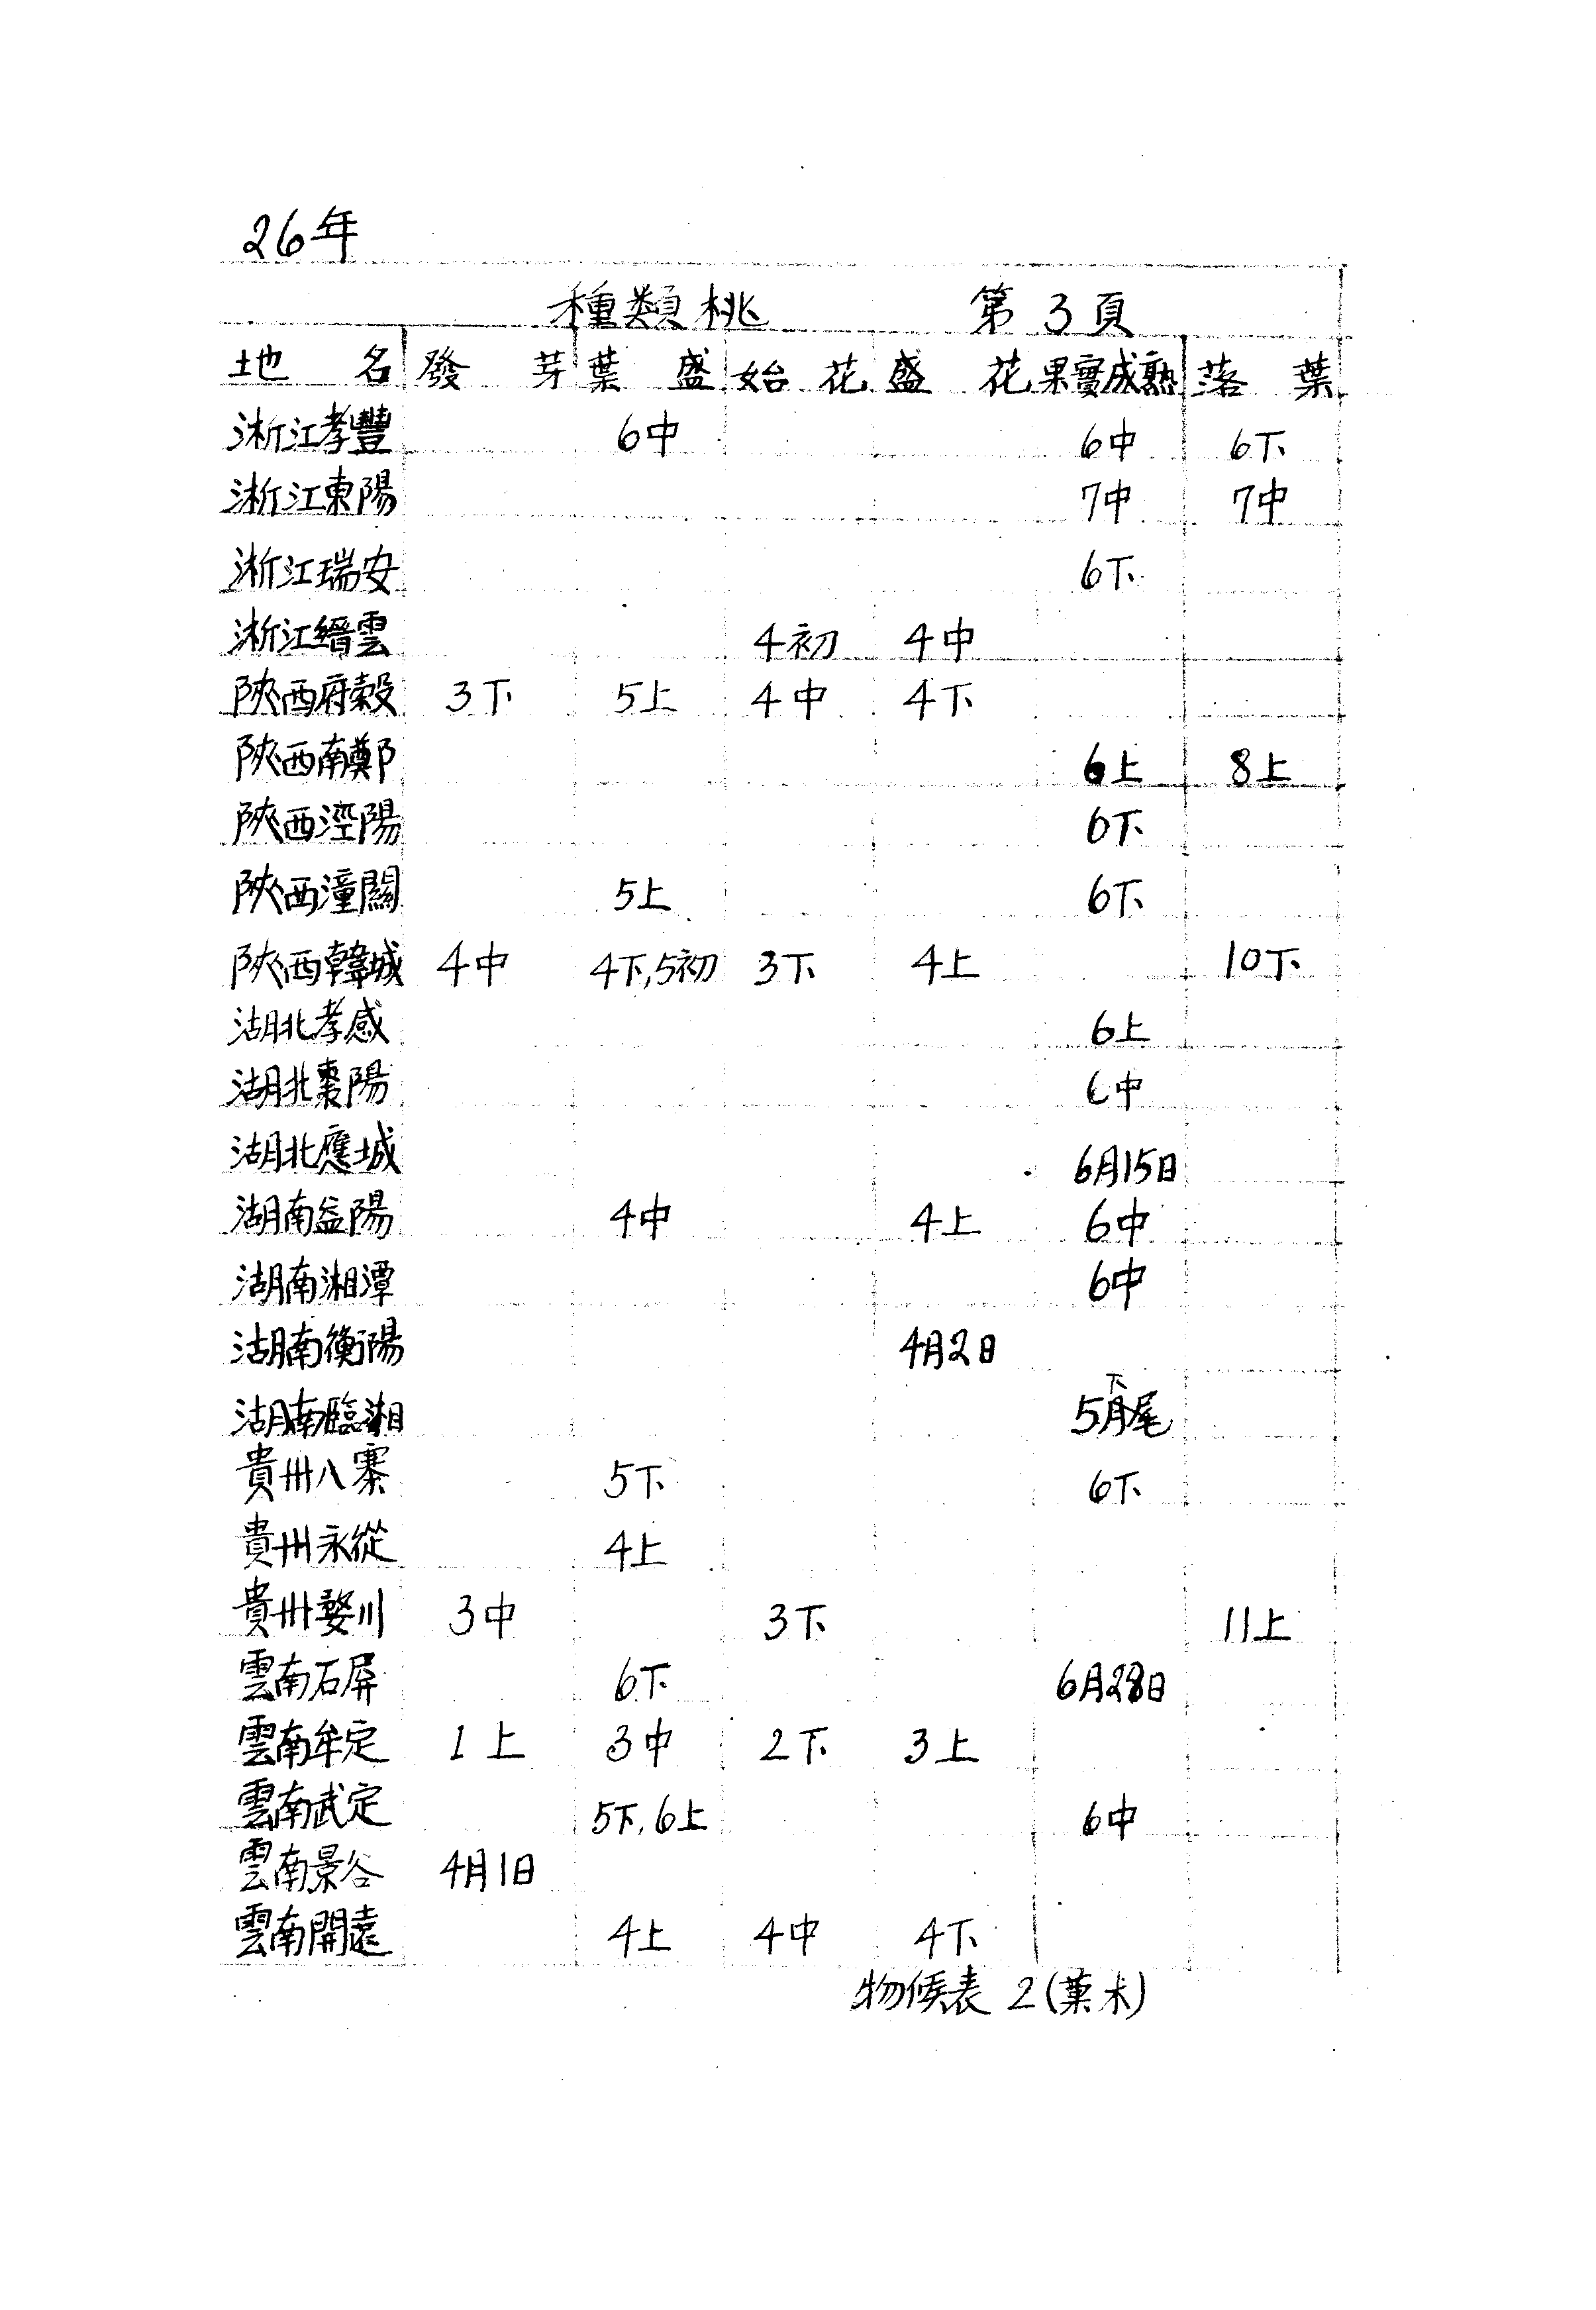 26年
種類桃 第3頁
地名 發芽 葉盛 始花 盛花 果實成熟 落葉
浙江孝豐 6中 6中 6下
浙江東陽 7中 7中
浙江瑞安 6下
浙江縉雲 4初 4中
陝西府穀 3下 5上 4中 4下
陝西南鄭 6上 8上
陝西涇陽 6下
陝西潼關 5上 6下
陝西韓城 4中 4下,5初 3下 4上 10下
湖北孝感 6上
湖北棗陽 6中
湖北應城 6月15日
湖南益陽 4中 4上 6中
湖南湘潭 6中
湖南衡陽 4月2日
下
湖南臨湘 5月尾
貴州八寨 5下 6下
貴州永從 4上
貴州婺川 3中 3下 11上
雲南石屏 6下 6月28日
雲南牟定 1上 3中 2下 3上
雲南武定 5下,6上 6中
雲南景谷 4月1日
雲南開遠 4上 4中 4下
物候表 2(菓木)